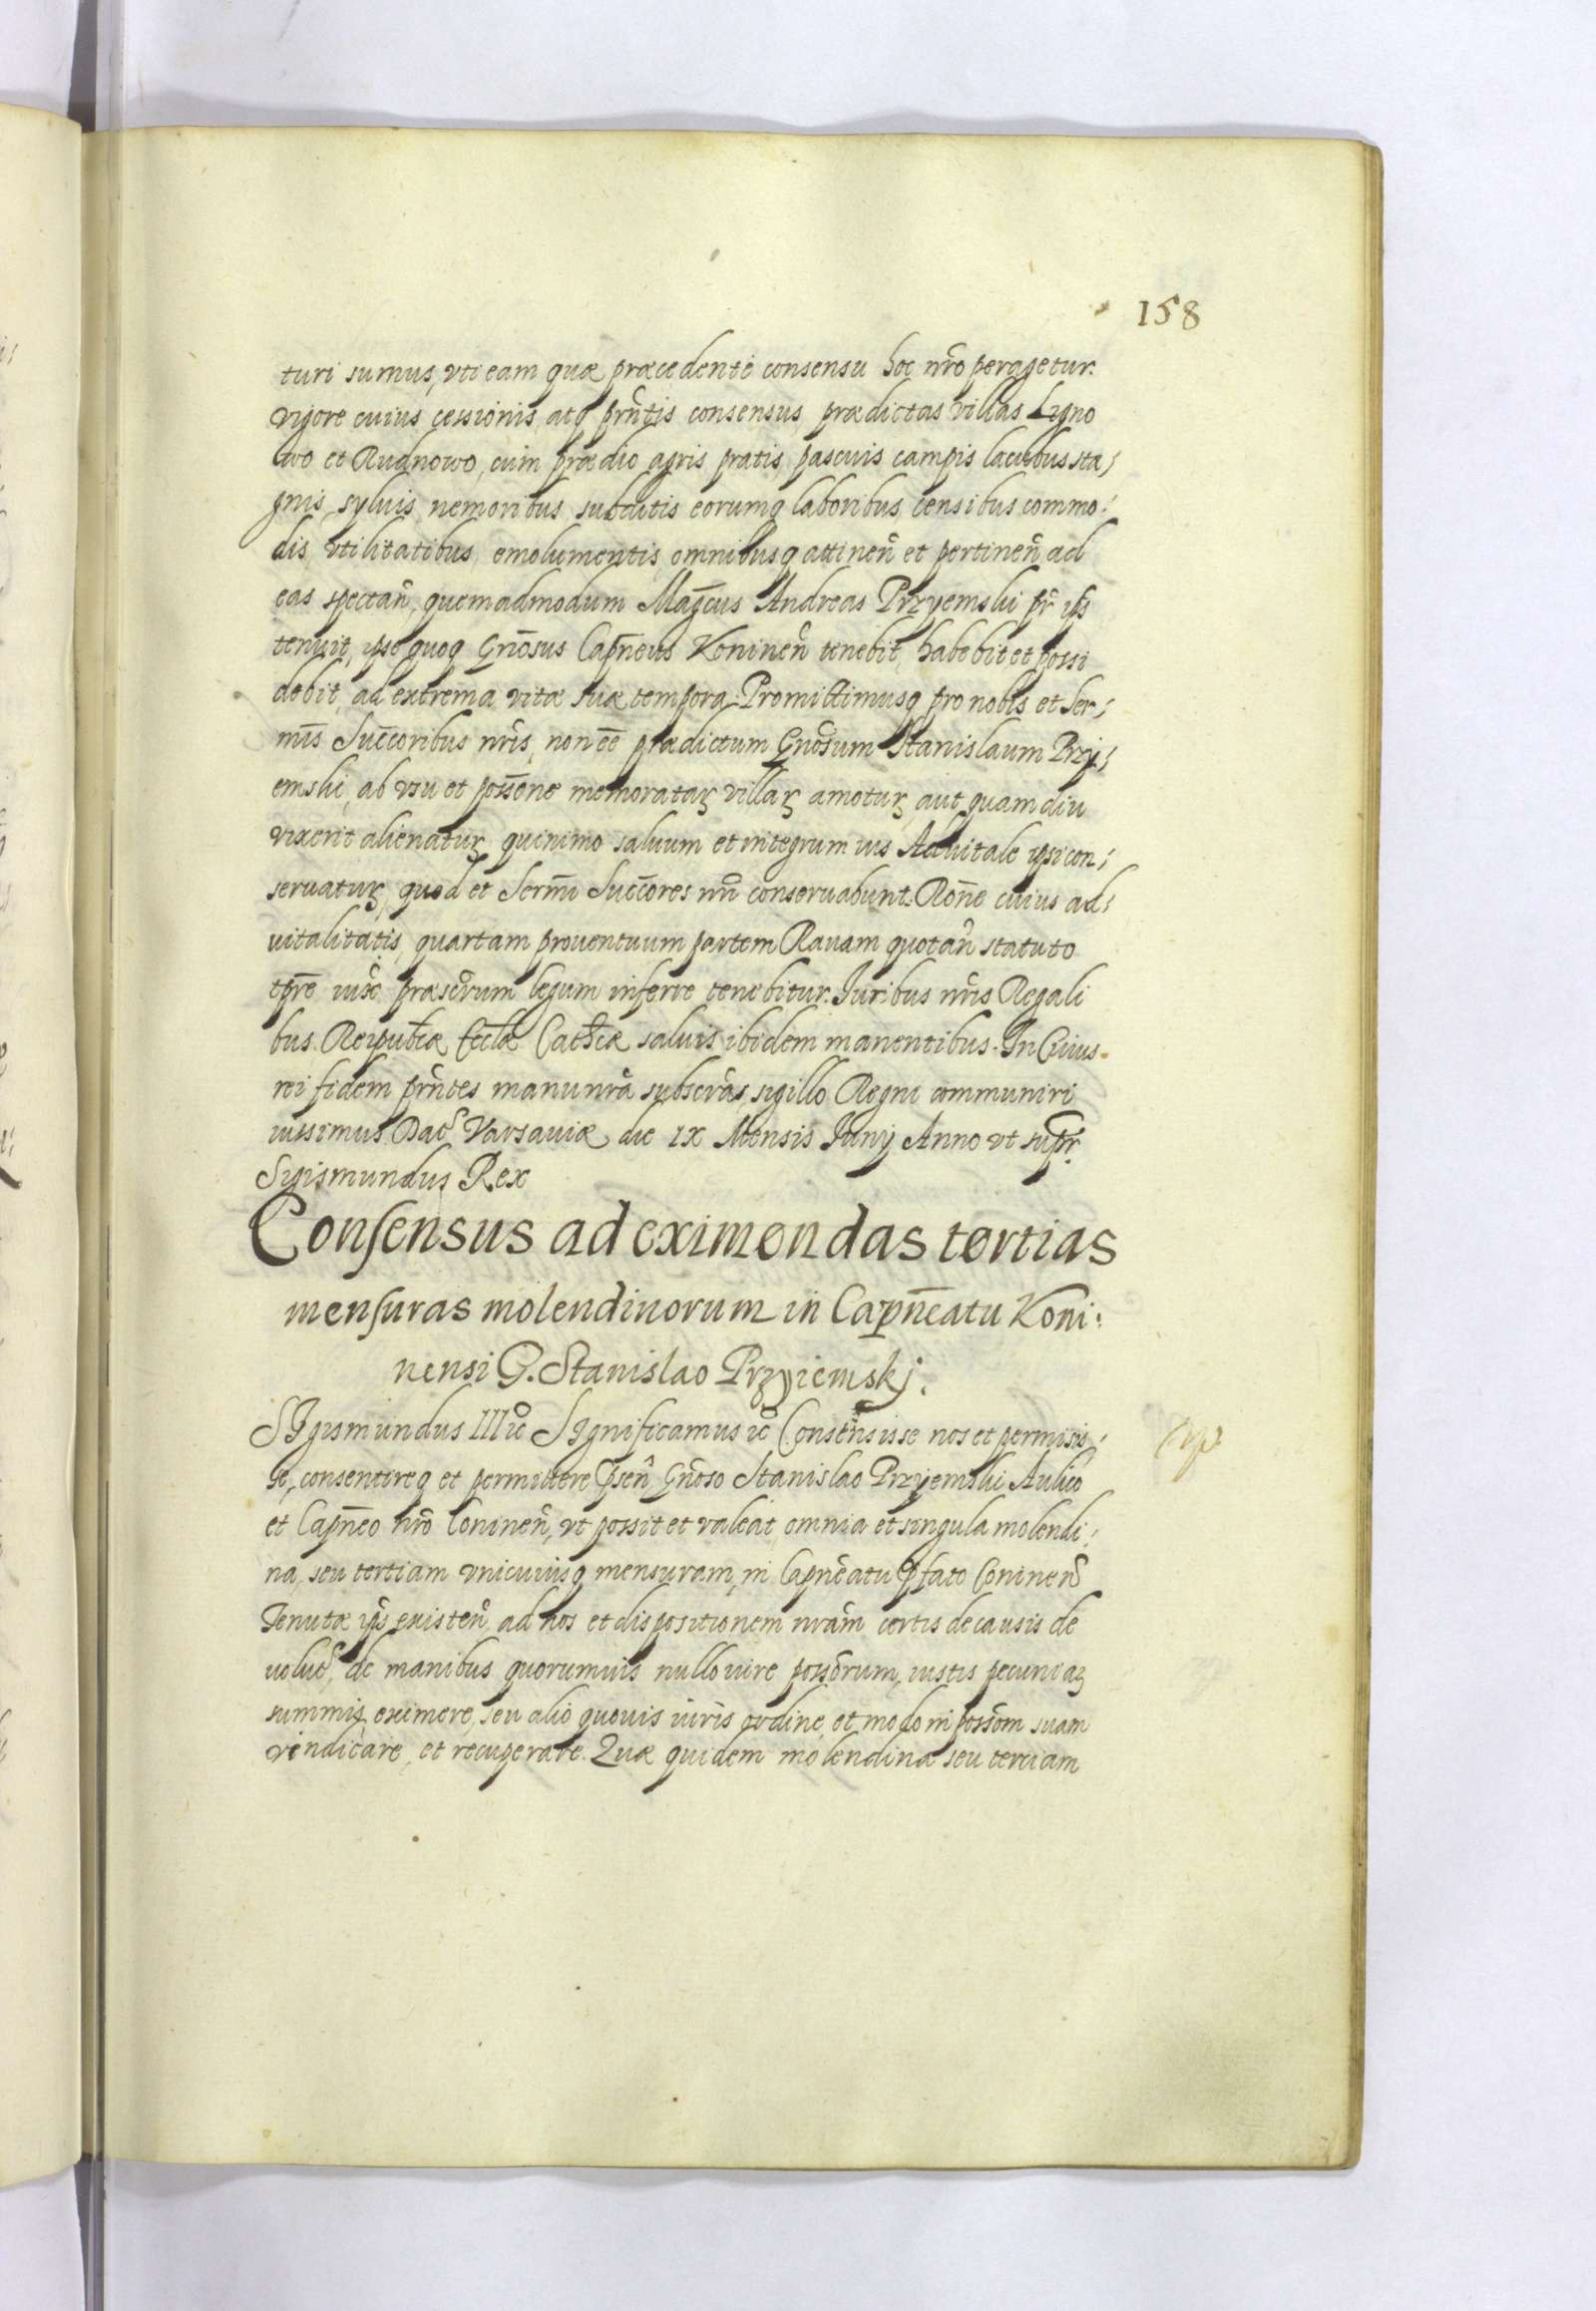 158
turi sumus, vti eam quæ præcedente consensu hoc nr̃o peragetur.
vigore cuius cessionis, atq prñtis consensus, prædictas villas Lygno
wo et Rudnowo, cum prædio agris pratis, pascuis campis lacubus sta;
gnis, syluis, nemoribus, subditis eorumq laboribus, censibus commo:
dis, vtilitatibus, emolumentis, omnibusq attinen̄ et pertinen̄ ad
eas spectan̄, quemadmodum Mag̃cus Andreas Przyemski
tenuit, ipse quoq Gnōsus Capn̄eus Koninen̄ tenebit, habebit et possi
debit, ad extrema vitæ suæ tempora. Promittimusq pro nobis et Ser;
mīs Succ̄oribus nr̄is, non eē̄ prædictum Gnōsum Stanislaum Przy;
emski, ab vsu et possōne memorataꝝ villaꝝ amotuꝝ, aut quamdiu
vixerit alienatuꝝ, quinimo saluum et integrum ius Aduitale ipsi con;
seruatuꝝ, quod et Sermī Succ̄ores nr̄i conseruabunt. Ron̄e cuius ad;
uitalitatis, quartam prouentuum partem Rauam quotan̄ statuto
tp̄re iux̄ præscr̄um legum inferre tenebitur. Iuribus nr̄is Regali
bus. Reipubcæ Ecclæ Cathcæ saluis ibidem manentibus. In Cuius
rei fidem prñtes manu nr̄a subscr̄as, sigillo Regni communiri
iussimus. Dat Varsauiæ die IX Mensis Iunij Anno vt supr̄.
Sigismundus Rex
Consensus ad eximendas tertias
mensuras molendinorum in Capn̄eatu Koni:
nensi G. Stanislao Przyiemskj.
SIgismundus III ic̄ SIgnificamus ic̄ Consensisse nos et permisis;
se, consentireq et permittere Gnōso Stanislao Przyemski Aulico
et Capn̄eo nr̄o Coninen̄, vt possit et valeat, omnia et singula molendi;
na, seu tertiam vnicuiusq mensuram, in Capn̄eatu p̄fato Coninen̄
Tenutæ existen̄, ad nos et dispositionem nr̄am certis de causis de
uolut, de manibus quorumuis nullo iure possōrum, iustis pecuniaꝝ
summis eximere, seu alio quouis iuris ordine, et modo in possōm suam
vindicare, et recuperare. Quæ quidem molendina seu tertiam